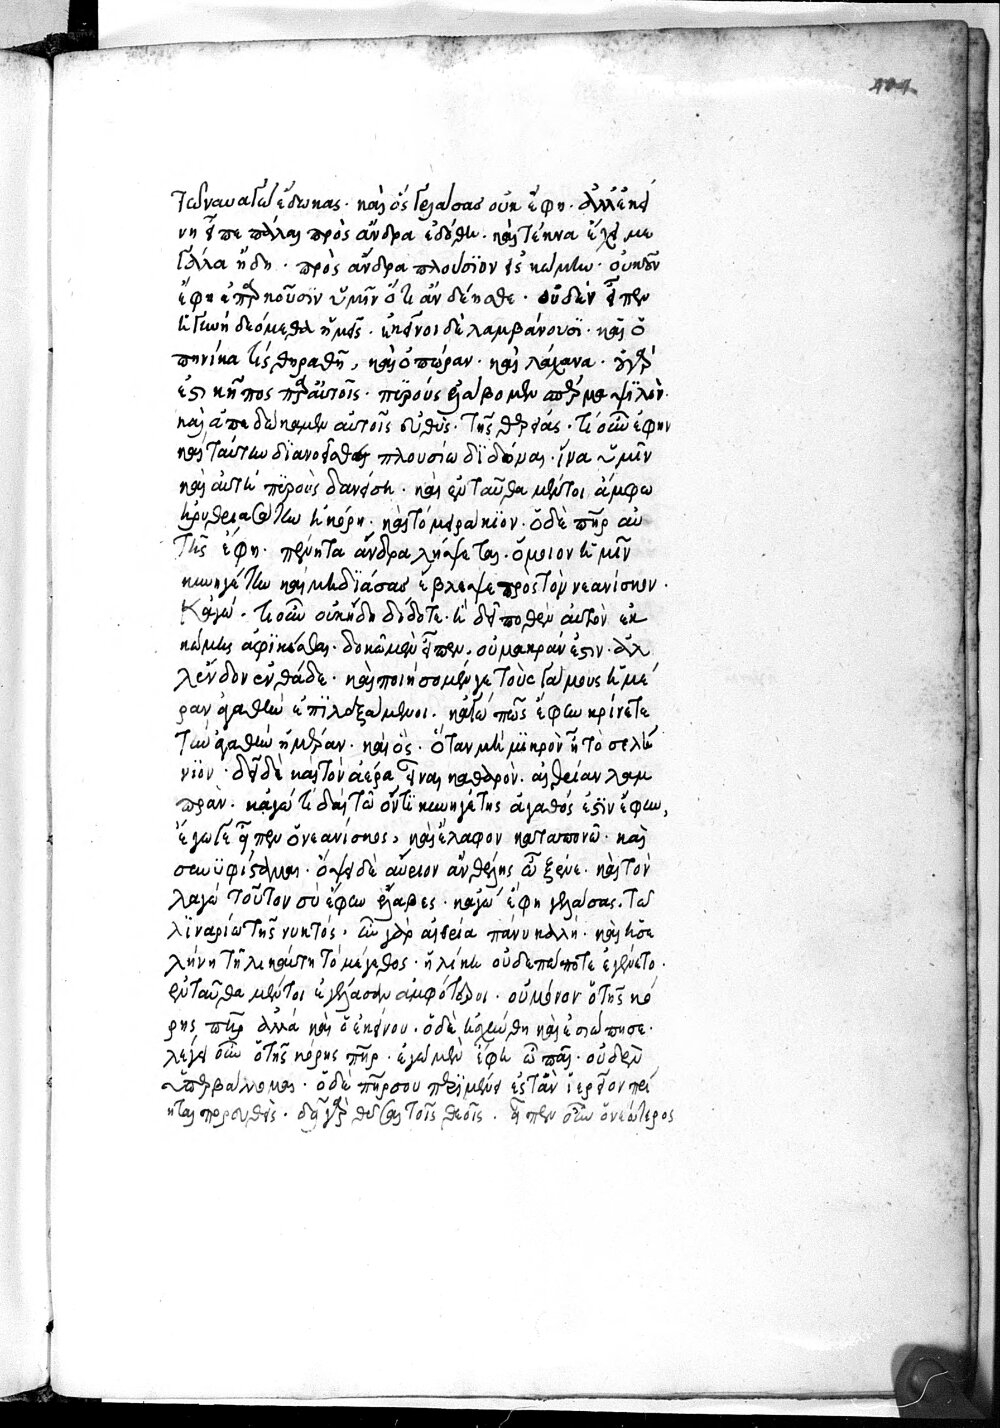 τῶν ναυαγῶν ἔδωκας· καὶ ὃς γελάσας οὐκ ἔφη· ἀλλ' ἐκεί
νη εἶπε πάλαι πρὸς ἄνδρα ἐδόθη· καὶ τέκνα ἔχει με
γάλα ἤδη· πρὸς ἄνδρα πλούσϊον εἰς κώμην· οὐκοῦν
ἔφην ἐπαρκοῦσϊν ὑμῖν ὅτι ἂν δέησθε· οὐδὲν εἶπεν
ἡ γυνὴ δεόμεθα ἡμεῖς· ἐκεῖνοι δὲ λαμβάνουσϊ· καὶ ὁ
πηνίκα τίς θηραθῆ, καὶ ὀπώραν· καὶ λάχανα· οὐ γὰρ
ἐστι κῆπος παρ' αὐτοῖς· πϋροὺς ἐλάβομεν σπέρμα ψϊλὸν·
καὶ ἀπεδώκαμεν αὐτοῖς εὐθὺς· τῆς θερείας· τί οὖν ἔφην
καὶ ταύτην δϊανοεῖσθαι πλουσίω δϊδόναι· ἵνα ὑμῖν
καὶ αὐτὴ πϋροὺς δανείση· καὶ ἐνταῦθα μέντοι ἄμφω
ἠρυθριασάτην ἡ κόρη· καὶ τὸ μειράκϊον· ὁ δὲ πατὴρ αὐ
τῆς ἔφη· πένητα ἄνδρα λήψεται· ὅμοιον ἡμῖν
κυνηγέτην καὶ μειδϊάσας ἔβλεψε προς τὸν νεανίσκον·
Καγώ· τί οὖν οὐκ ἤδη δίδοτε· ἢ δεῖ ποθὲν αὐτὸν ἐκ
κώμης ἀφϊκέσθαι· δοκῶ μὲν εἶπεν· οὐ μακράν ἐστιν· ἀλ
λ' ἔνδον ἐνθάδε· καὶ ποιήσομέν γε τοὺς γάμους ἡμέ
ραν ἀγαθὴν ἐπϊλεξάμενοι· κἀγὼ πῶς ἔφην κρίνετε
τὴν ἀγαθὴν ἡμέραν· καὶ ὃς· ὅταν μὴ μϊκρὸν ἦ τὸ σελή
νϊον· δεῖ δὲ καὶ τὸν ἀέρα εἶναι καθαρὸν· αἰθρίαν λαμ
πρὰν· κἀγώ τί δαὶ τῶ ὄντϊ κυνηγέτης ἀγαθός ἐστϊν ἔφην,
ἔγωγε εἶπεν ὁ νεανίσκος, καὶ ἔλαφον καταπονῶ· καὶ
συν ὑφίσταμαι· ὄψει δὲ αὔριον ἂν θέλης ὦ ξένε· καὶ τὸν
λαγὼ τοῦτον σὺ ἔφην ἔλαβες· καγὼ ἔφη γελάσας· τῶ
λϊναρίω τῆς νυκτός· ἦν γὰρ αἰθρία πάνυ καλὴ· καὶ ἡ σε
λήνη τηλικαύτη τὸ μέγεθος· ἡλίκη οὐδεπώποτε ἐγένετο·
ἐνταῦθα μέντοι ἐγέλασαν ἀμφότεροι· οὐ μόνον ὁ τῆς κό
ρης πατὴρ ἀλλὰ καὶ ὁ ἐκείνου· ὁ δὲ ἠσχύνθη καὶ ἐσιώπησε·
λέγει οὖν ὁ τῆς κόρης πατὴρ· ἐγὼ μὲν ἔφη ὦ παῖ· οὐδὲν
ὑπερβάλλομαι· ὁ δὲ πατήρ σου περϊμένει ἐστὰν ἱερεῖον πρί
ηται πορευθεὶς· δεῖ γὰρ θῦσαι τοῖς θεοῖς· εἶπεν οὖν ὁ νεώτερος